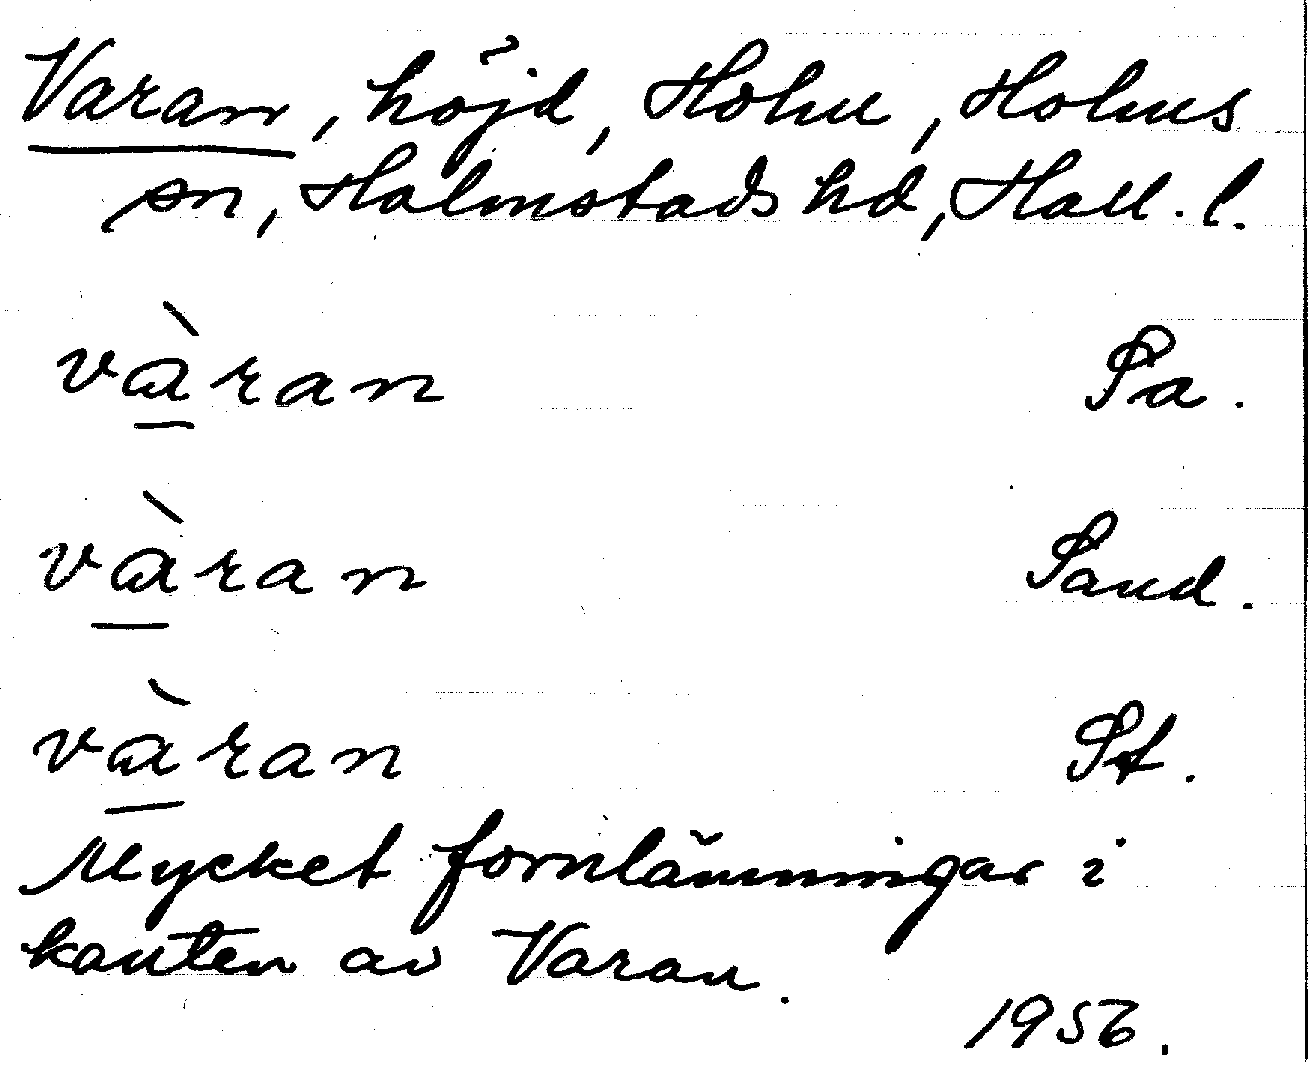 Varan, höjd, Holm, Holms
sn, Halmstads hd, Hall. l.
vàran Pa.
vàran Sand.
vàran St.
Mycket fornlämningar i
kanten av Varan.
1956.